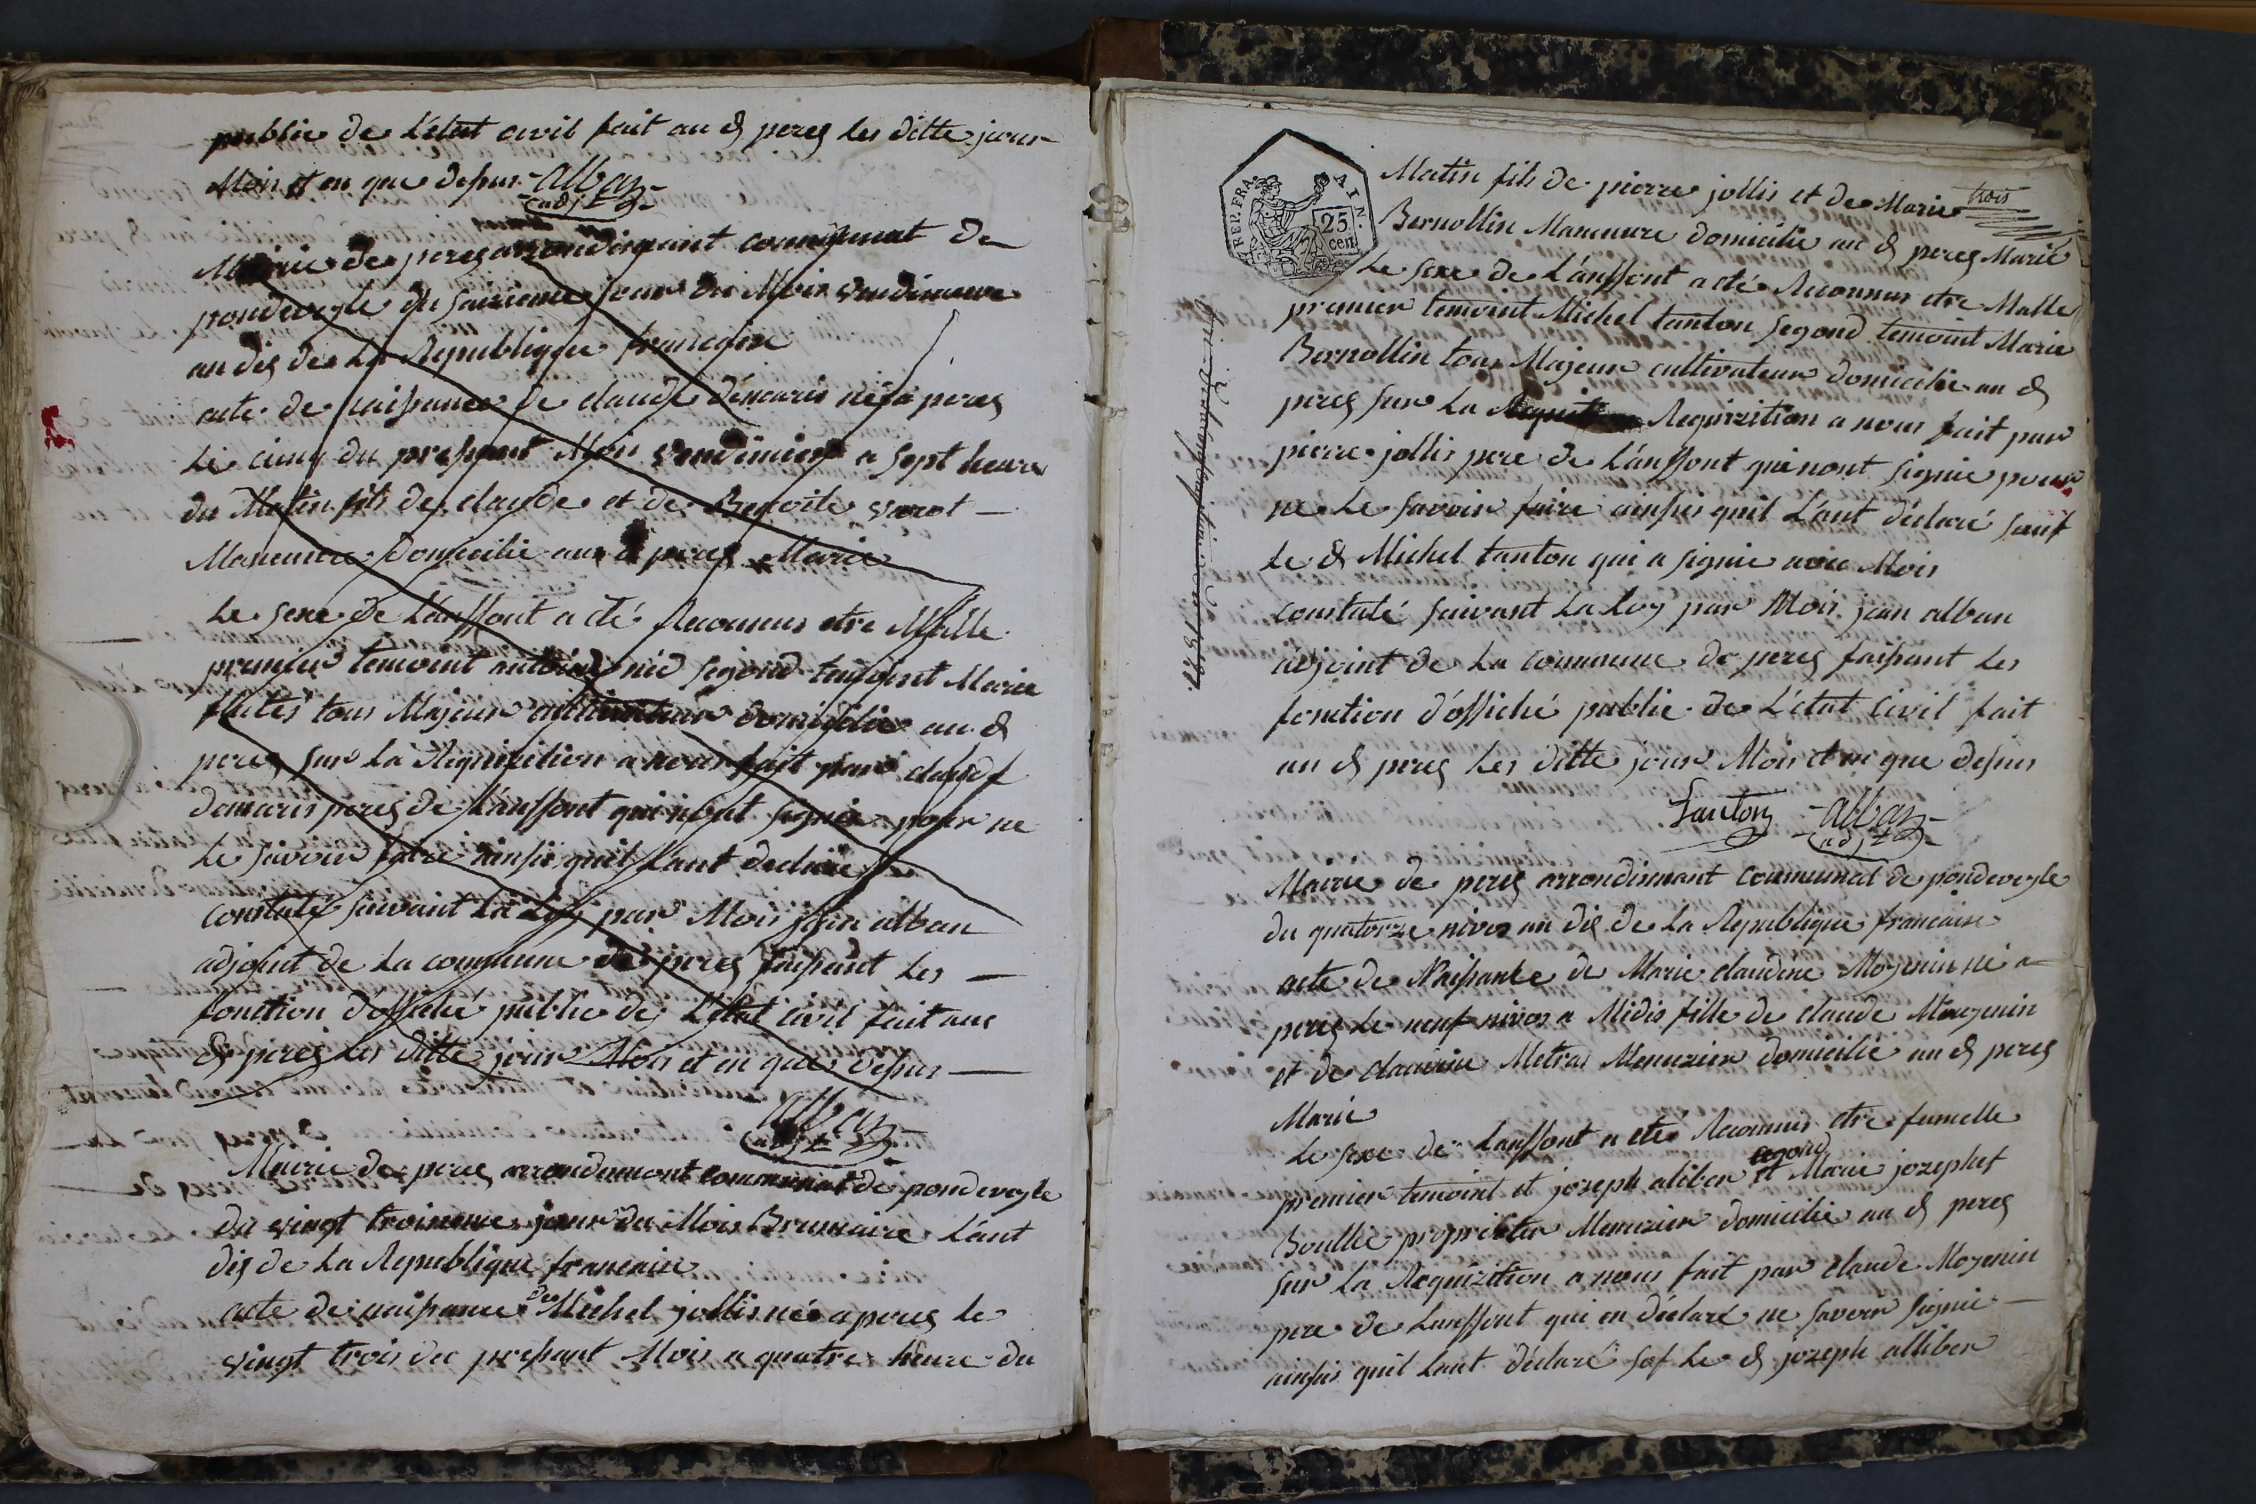 publie de L'etat civil fait au d peres les ditte jour
Mois et en que desus alban
adjt
Mairie de peres arrondisment comunal de
pondeveyle du saizieme jour du Mois vendimiere
an dis de La Republique francaise
acte de naissance de claude démaris né à peres
Le cinq du pressent Mois vendimiere a sept heure
du Matin fils de claude et de Benoite varot
Maneuvre domicilie au d peres Marié
Le sexe de L'anffont a eté Reconnus etre Malle
premier temoint antoine segond temoint Marie
tous Majeur cultivateur domicilie au d
peres sur La Requisition a nous fait par claude
demaris peres de L'anffont qui nont signie pour ne
Le savoir faire ainsis quil L'ant declaré
constaté suivant La Loy par Mois jean alban
adjoint de La commune de peres faissant Les
fonction d'offichié publie de L'etat civil fait au
d peres les ditte jour Mois et en que desus
alban
adjt
Mairie de peres arrondismont communal de pondeveyle
du vingt troisieme jour du Mois Brumaire L'ant
dis de La Republique francaise
acte de naissance de Michel jollis née a peres le
vingt trois du pressant Mois a quatre heure du
trois
REP. FRA. AIN.
25 cen
Matin fils de pierre jollis et de Marie
Bernollin Maneuvre domicilie au d peres Marié
Le sexe de L'anffont a eté Reconnus etre Malle
premier temoint Michel tanton segond temoint Marie
Bernollin tous Majeur cultivateur domicilie au d
peres sur La Requizition a nous fait par
pierre jollis pere de L'anffont qui nont signie pour
ne Le savoir faire ainsis quil L'ant déclaré sauf
Le d Michel tanton qui a signie avec Mois
constaté suivant La Loy par Mois jean alban
adjoint de La commune de peres faissant Les
fonction d'offichié publie de L'état civil fait
au d peres Les ditte jour Mois et en que desus
tanton alban
adjt
Mairie de peres arrondismant communal de pondeveyle
du quatorze nivos an dis de La Republique francaise
acte de Naissance de Marie claudine Moyenin né a
peres Le neuf nivos a Midis fille de claude Moyenin
et de claudine Metras Menuzier domicilie au d peres
Marié
Le sexe de Lanffont a eté Reconnus etre fumelle
premier temoint et jozeph aliber et segond Marie jozephet
Boullié proprieter Menuzier domicilie au d peres
sur La Requizition a nous fait par claude Moyenin
pere de Lanffont qui en déclaré ne saveir signie
ainsis quil Lant déclaré sof Le d jozeph alliber